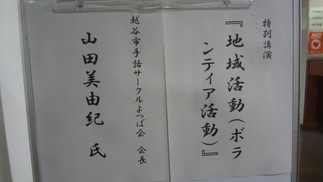 特別講演
『地域活動(ボラ
ンティア活動)』
越谷市手話サークルよつば会 会長
山田美由紀 氏